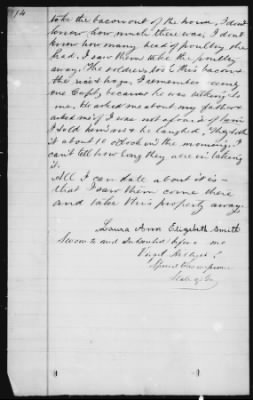 14
take the bacon out of the house, I dont
know how much there was, I dont
know how many head of poultry she
had. I saw them take the poultry
away. The soldiers took this bacon &
the rice & hogs. I remember only
one Capt, because he was talking to
me. He asked me about my father &
asked me if I was not afraid of him
I told him no & he laughed. They took
it about 10 oclock in the morning. I
can't tell how long they were in taking
it.
All I can state about it is —
that I saw them come there
and take this property away.
Laura Ann Elizabeth Smith
Sworn to and Subscribed before me
Virgil Hillyer
Special Commissioner
State of Ga